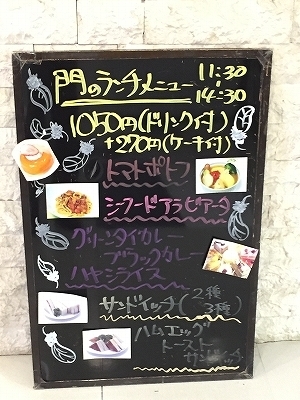 門のランチメニュー 11:30
〜14:30
1050円(ドリンク付)
+270円(ケーキ付)
トマトポトフ
シーフードアラビアータ
グリーンタイカレー
ブラックカレー
ハヤシライス
サンドイッチ(2種
3種)
ハムエッグ
トースト
サンドイッチ